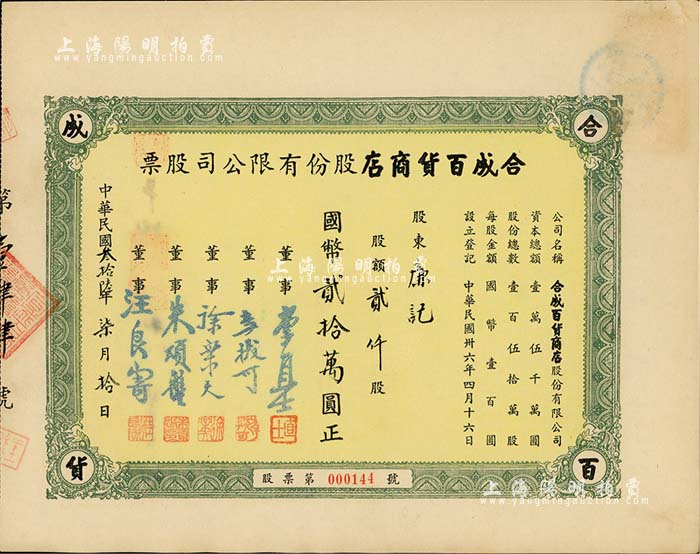 上海陽明拍賣
www.yangmingauction.com
合
成
百
貨
合成百貨商店股份有限公司股票
公司名稱 合成百貨商店股份有限公司
資本總額 壹萬伍千萬圓
股份總數 壹百伍拾萬股
每股金額 國幣壹百圓
設立登記 中華民國卅六年四月十六日
股東 廉記
股額 貳仟 股
國幣貳拾萬圓正
董事
董事
董事 徐業天
董事 朱順馥
董事 汪良寄
中華民國叁拾陸年柒月拾日
股票第 000144 號
第 號
上海陽明拍賣
www.yangmingauction.com
上海陽明拍賣
www.yangmingauction.com